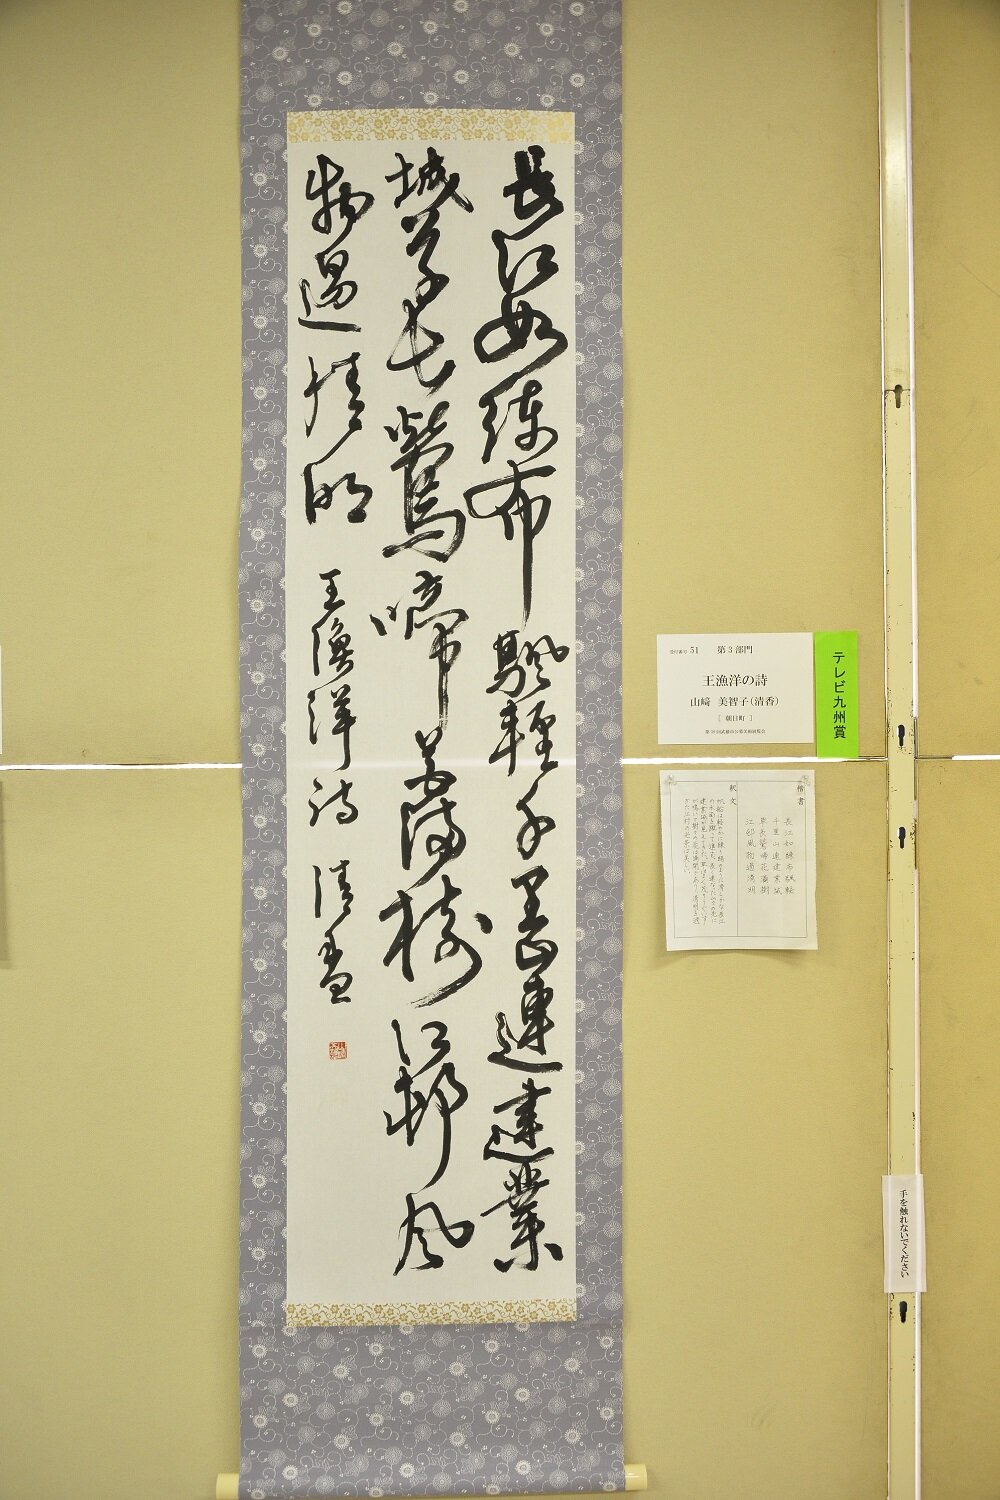 長江如練布颿輕千里山連建業
城草長鶯啼花滿樹江邨風
物過清明
王漁洋詩 清香
受付番号 51 第3部門
王漁洋の詩
山﨑 美智子(清香)
[ 朝日町 ]
テレビ九州賞
楷書
長江如練布颿軽
千里山連建業城
草長鶯啼花満樹
江邨風物過清明
釈文
手を触れないでください